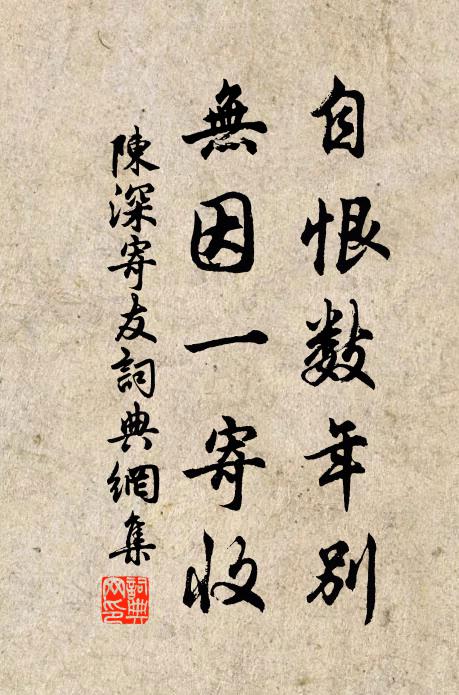 自恨数年别
無因一寄收
陳深寄友詞典網集
詞典
网印